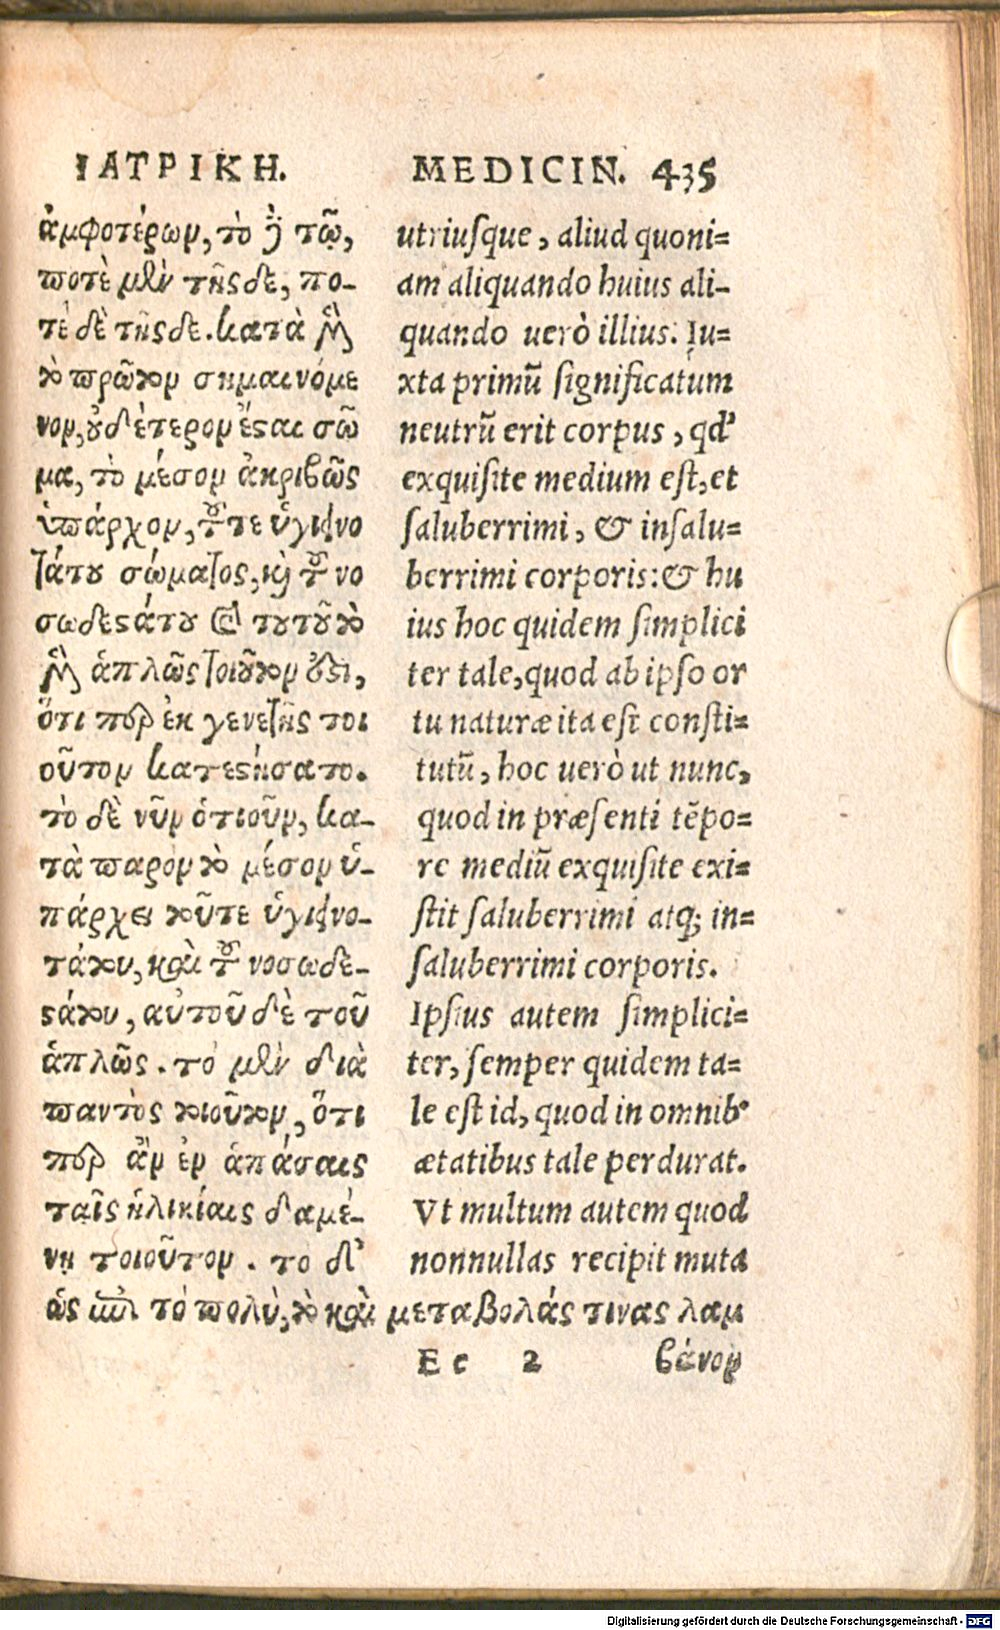 ΙΑΤΡΙΚΗ.
ἀμφοτέρων, τὸ δὲ τῷ,
ποτὲ μὲν τῆςδε, πο-
τὲ δὲ τῆςδε. κατὰ μὲν
τὸ πρῶτον σημαινόμε
νον, οὐδέτερον ἔσται σῶ
μα, τὸ μέσον ἀκριβῶς
ὑπάρχον, τοῦτε ὑγιεινο
τάτου σώματος, καὶ τοῦ νο
σωδεστάτου καὶ τουτοῦ τὸ
μὲν ἁπλῶς τοιοῦτον ἐστι,
ὅτι περ ἐκ γενετῆς τοι
οῦτον κατεστήσατο.
τὸ δὲ νῦν ὁτιοῦν, κα-
τὰ παρὸν τὸ μέσον ὑ-
πάρχει τοῦτε ὑγιεινο-
τάτου, καὶ τοῦ νοσωδε-
στάτου, αὐτοῦ δὲ τοῦ
ἁπλῶς. τὸ μὲν διὰ
παντὸς τοιοῦτον, ὅτι
περ ἂν ἐν ἁπάσαις
ταῖς ἡλικίαις διαμέ-
νῃ τοιοῦτον. το δ'
ὡς ἐπὶ τὸ πολὺ, τὸ καὶ μεταβολάς τινας λαμ
MEDICIN. 435
utriuſque, aliud quoni=
am aliquando huius ali-
quando uerò illius. Iu=
xta primũ ſignificatum
neutrũ erit corpus, qd'
exquiſite medium eſt, et
ſaluberrimi, & inſalu=
berrimi corporis: & hu
ius hoc quidem ſimplici
ter tale, quod ab ipſo or
tu naturæ ita eſt conſti=
tutũ, hoc uerò ut nunc,
quod in præſenti tẽpo=
re mediũ exquiſite exi=
ſtit ſaluberrimi atq; in=
ſaluberrimi corporis.
Ipſius autem ſimplici=
ter, ſemper quidem ta=
le eſt id, quod in omnib'
ætatibus tale perdurat.
Vt multum autem quod
nonnullas recipit muta
Ee 2 βάνον
Digitalisierung gefördert durch die Deutsche Forschungsgemeinschaft - DFG